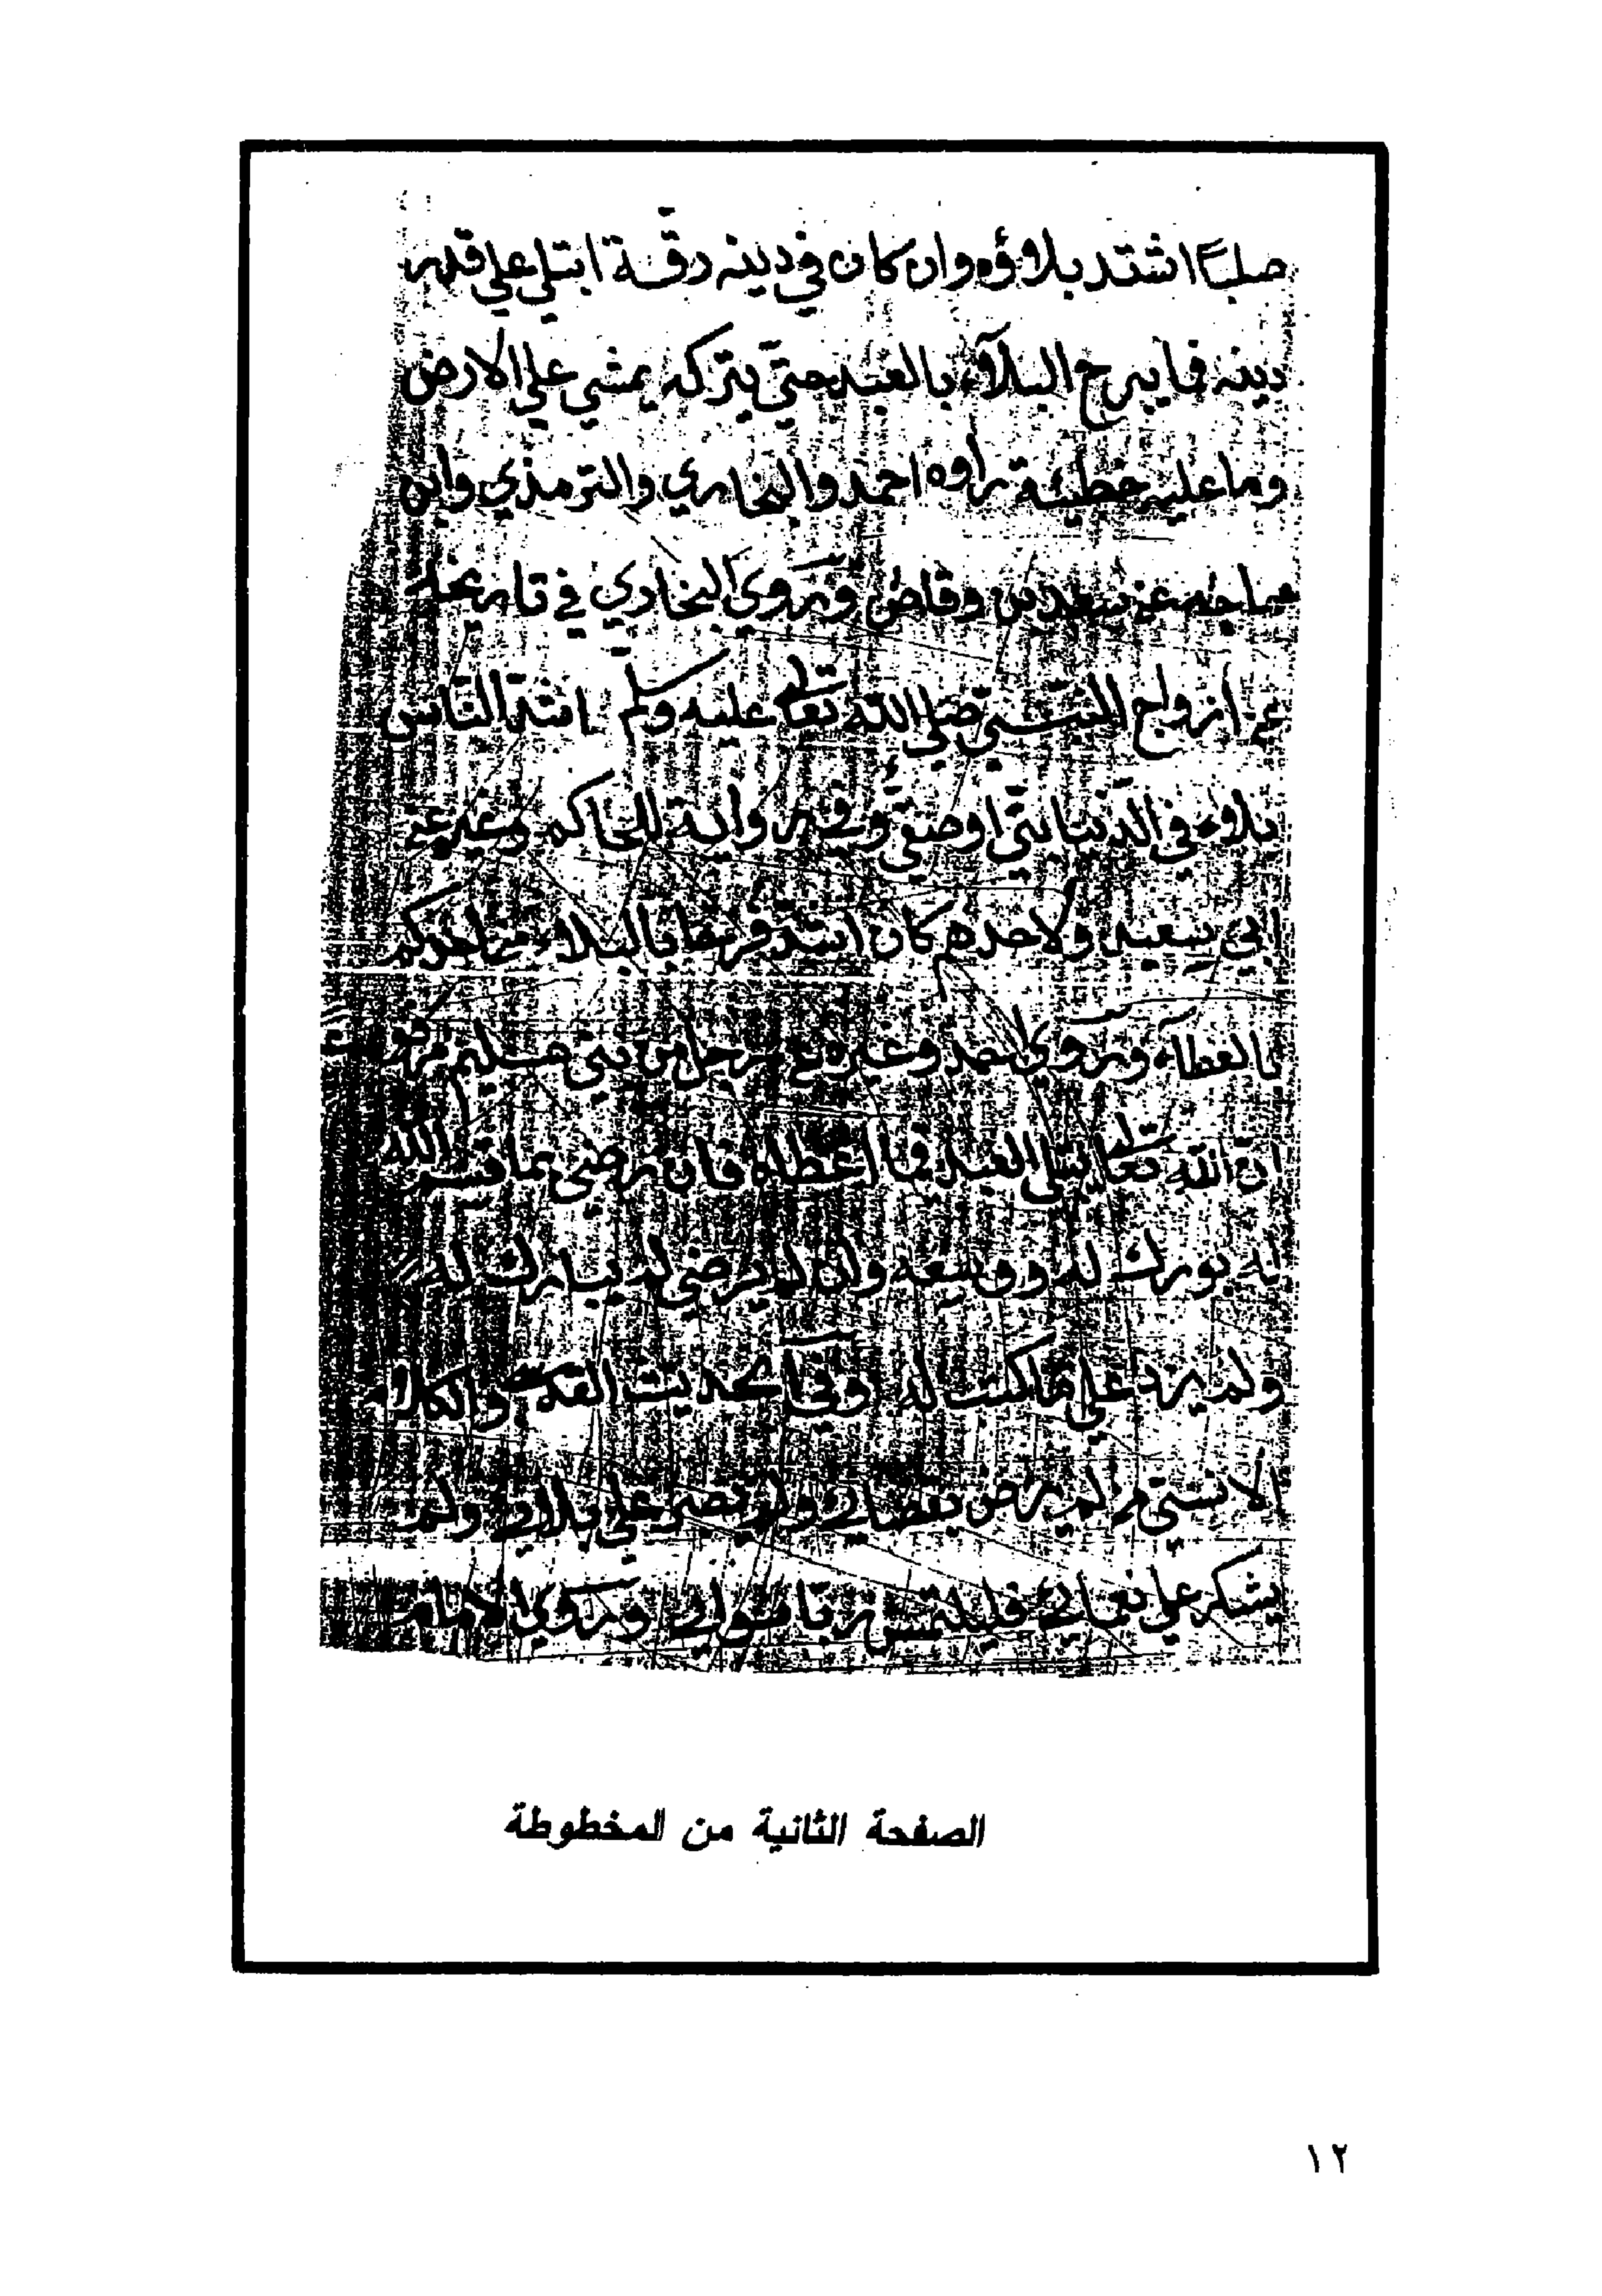 صلبا اشتد بلاؤه وان كان في دينه رقة ابتلي علي قدر
دينه فما يبرح البلآء بالعبد حتي يتركه يمشي علي الارض
وما عليه خطيئة رواه احمد والبخاري والترمذي وابن
ماجه عن سعد بن وقاص وروي البخاري في تاريخه
عن ازواج النبي صلي الله تعالي عليه وسلم اشد الناس
بلاء في الدنيا نبي او صفي وفي رواية للحاكم وغيره عن
ابي سعيد ولاحدهم كان اشد فرحا بالبلاء من احدكم
بالعطآء وروي احمد وغيره عن رجل من بني سليم مرفوعا
ان الله تعالي يبتلي العبد فيما اعطاه فان رضي بما قسم الله
له بورك له ووسعه وان لم يرض لم يبارك له
ولم يزد علي ما كتب له وفي الحديث القدسي والكلام
الانسي من لم يرض بقضائي ولم يصبر علي بلائي ولم
يشكر علي نعمائي فليلتمس ربا سوائي وروي الامام
الصفحة الثانية من المخطوطة
١٢